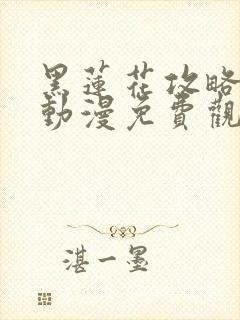 黑蓮花攻略
動漫免費觀
湛一墨